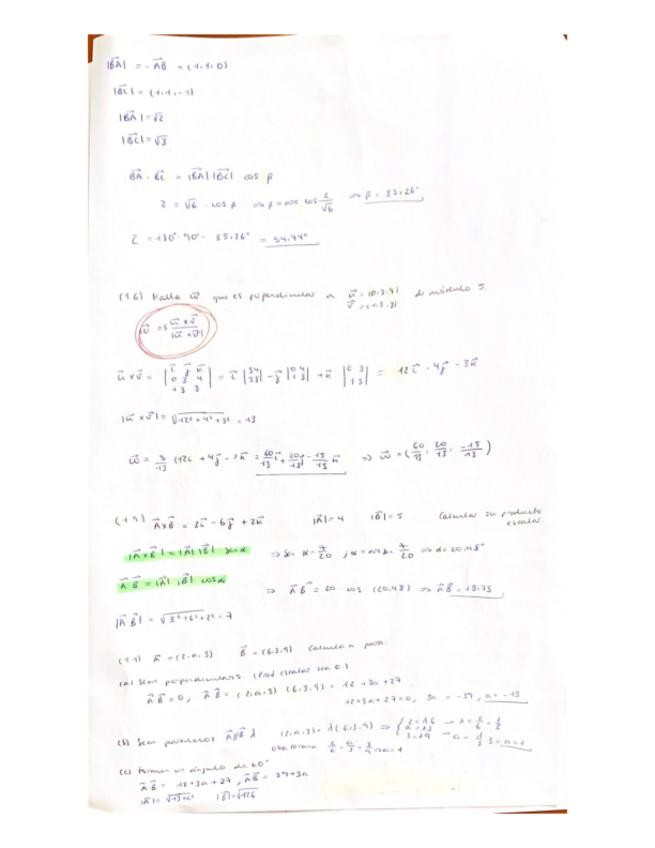 |BA| = -AB = (1,1,0)
|BC| = (1,1,-1)
|BA| = √2
|BC| = √3
BA · BC = |BA| |BC| · cos β
2 = √6 · cos β ⇒ β = arc cos 2/√6 ⇒ β = 35,26°
180° - 90 - 35,26° = 54,74°
Halla w que es perpendicular a u = (0,3,4) de módulo 5.
w = 5 u×v / |u×v|
= 12i - 4j - 3k
|u×v| = √12²+4²+3² = 13
w = 5/13 (12i + 4j - 3k = 60/13 i + 20/13 j - 15/13 k ⇒ w = (60/13, 20/13, -15/13)
A×B = 3i - 6j + 2k |A| = 4 |B| = 5 Calcular su producto
escalar.
|A×B| = |A| |B| sen α ⇒ sen α = 7/20 ; 7/20 ⇒ α = 20,48°
A B = |A| |B| cos α ⇒ A B = 20 · cos (20,48) ⇒ A B = 18,73
|A B| = √3²+6²+2² = 7
A = (2,a,3) B = (6,3,9) Calcula a para:
(a) Sean perpendiculares. (Prod escalar sea 0.)
A B = 0, A B = (2,a,3) (6,3,9) = 12 + 3a + 27
12+3a+27=0, 3a = -39, a = -13
(b) Sean paralelos A||B λ (2,a,3) = λ(6,3,9) ⇒
otra forma 2/6 = a/3 = 3/9 ⇒ a=1
(c) formen un ángulo de 60°
A B = 12+3a+27, A B = 39+3a
|A| = √13+a² |B| = √126